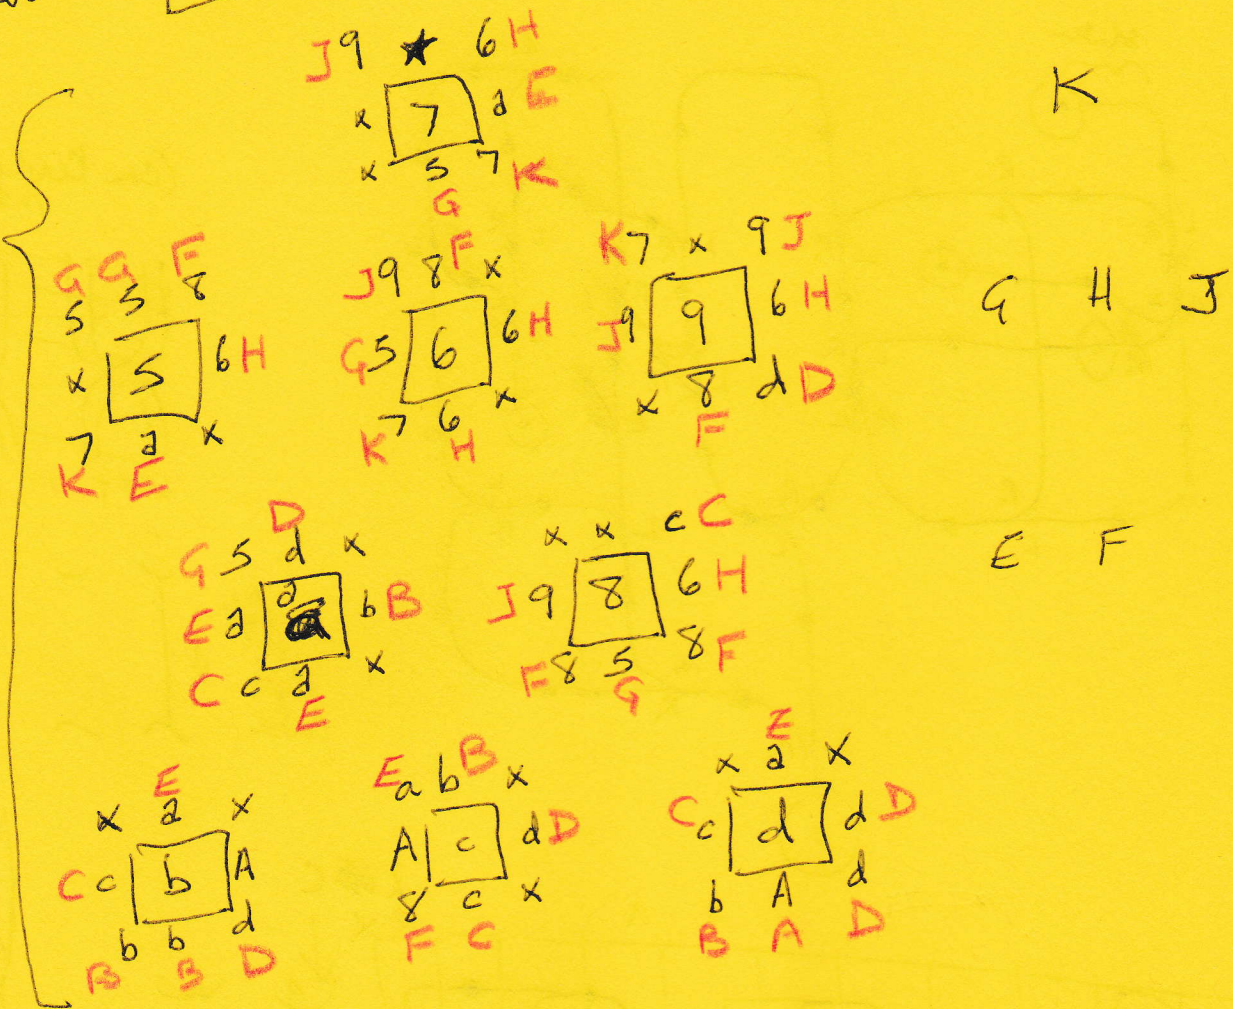 J 9 ★ 6 H
x 7 a E
K
x 5 7 K
G
G G F
5 5 8
x 5 6 H
7 a x
K E
F
J 9 8 x
G 5 6 6 H
7 6 x
K H
K 7 x 9 J
J 9 9 6 H
x 8 d D
F
G H J
D
G 5 d x
E a a b B
C c a x
E
x x c C
J 9 8 6 H
F 8 5 8 F
G
E F
E
x a x
C c b A
b b d
B B D
E B
a b x
A c d D
8 c x
F C
E
x a x
C c d d D
b A d
B A D